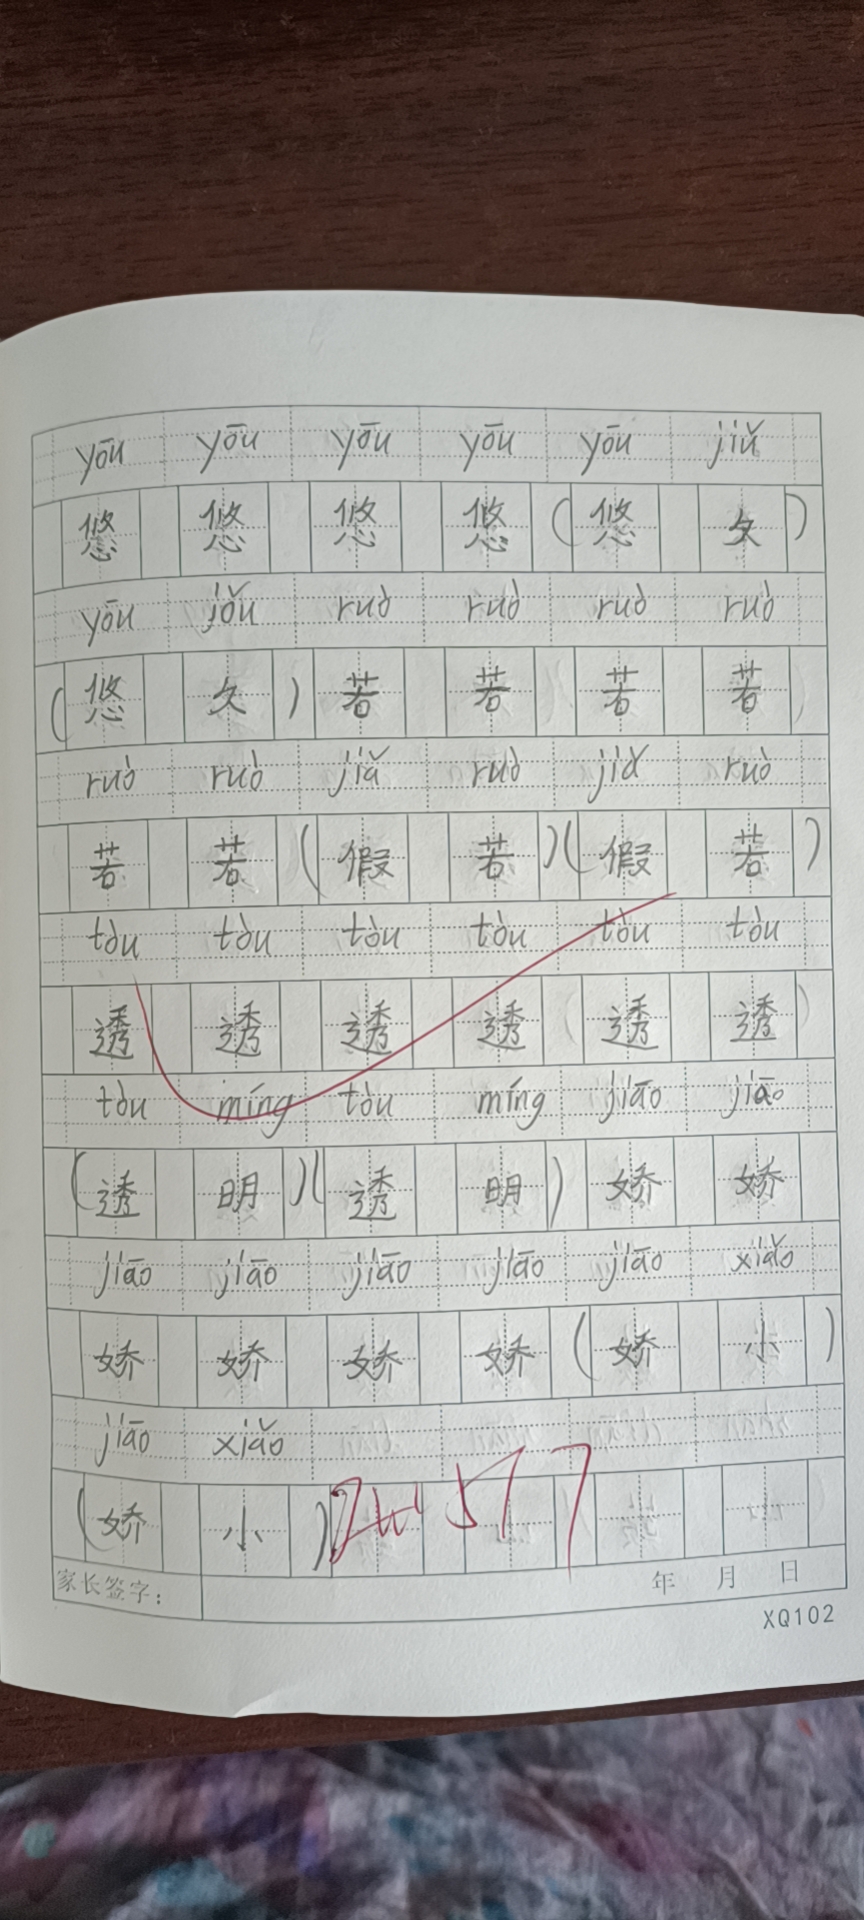 yōu yōu yōu yōu yōu jiǔ
悠 悠 悠 悠 (悠 久)
yōu jǒu ruò ruò ruò ruò
(悠 久) 若 若 若 若
ruò ruò jiǎ ruò jiǎ ruò
若 若 (假 若)(假 若)
tòu tòu tòu tòu tòu tòu
透 透 透 透 透 透
tòu míng tòu míng jiāo jiāo
(透 明)(透 明) 娇 娇
jiāo jiāo jiāo jiāo jiāo xiǎo
娇 娇 娇 娇 (娇 小)
jiāo xiǎo
(娇 小)
家长签字: 年 月 日
XQ102